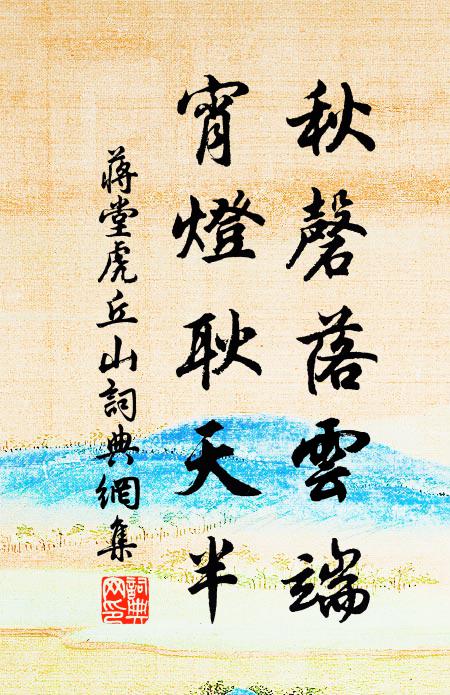 秋磬落雲端
宵燈耿天半
蔣堂虎丘山詞典網集
詞典網印